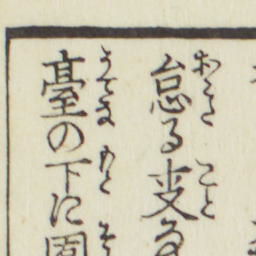 おこた こと
怠る叓な
うてな もと
臺の下に